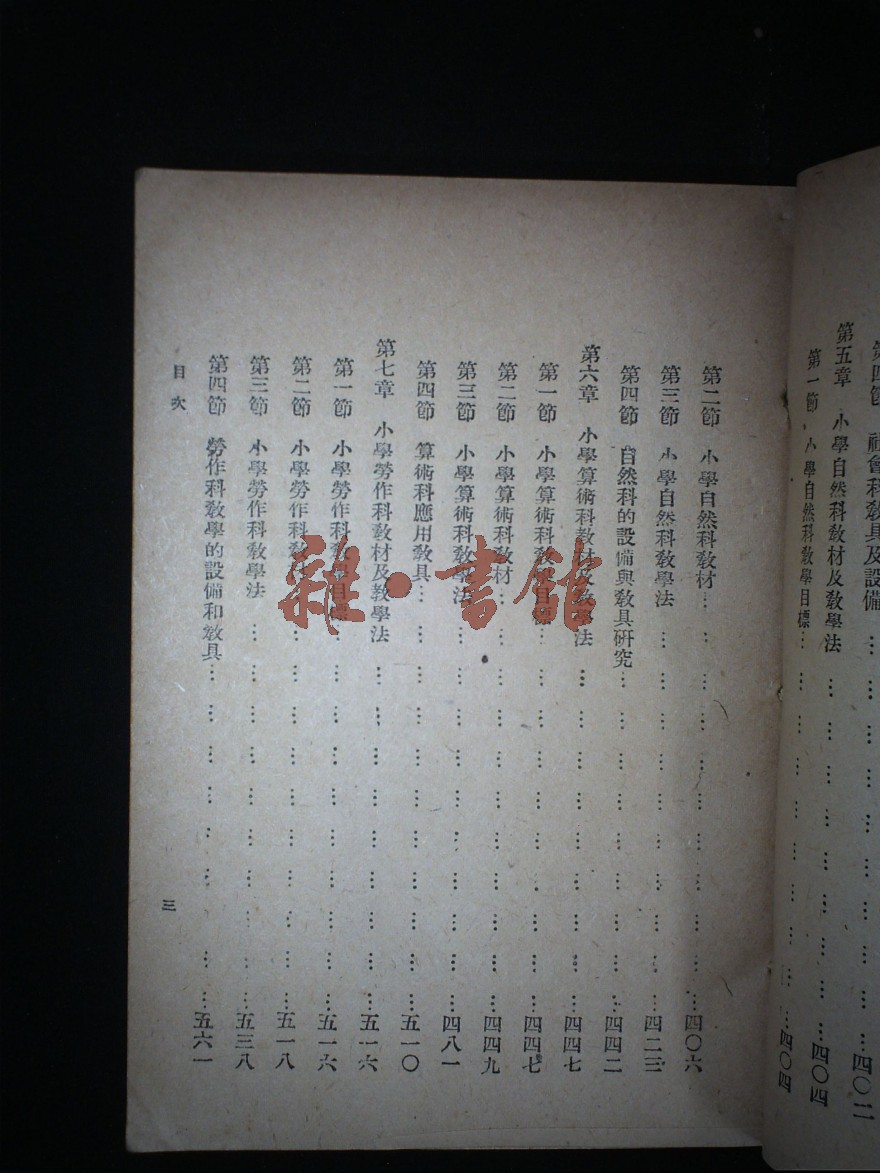 第四節　社會科教具及設備…………四〇二
第五章　小學自然科教材及教學法…………四〇四
第一節　小學自然科教學目標…………四〇四
第二節　小學自然科教材…………四〇六
第三節　小學自然科教學法…………四二三
第四節　自然科的設備與教具研究…………四四二
第六章　小學算術科教材及教學法…………四四七
第一節　小學算術科教學目標…………四四七
第二節　小學算術科教材…………四四九
第三節　小學算術科教學法…………四八一
第四節　算術科應用教具…………五一〇
第七章　小學勞作科教材及教學法…………五一六
第一節　小學勞作科教學目標…………五一六
第二節　小學勞作科教材…………五一八
第三節　小學勞作科教學法…………五三八
第四節　勞作科教學的設備和教具…………五六一
目次
三
雜·書館